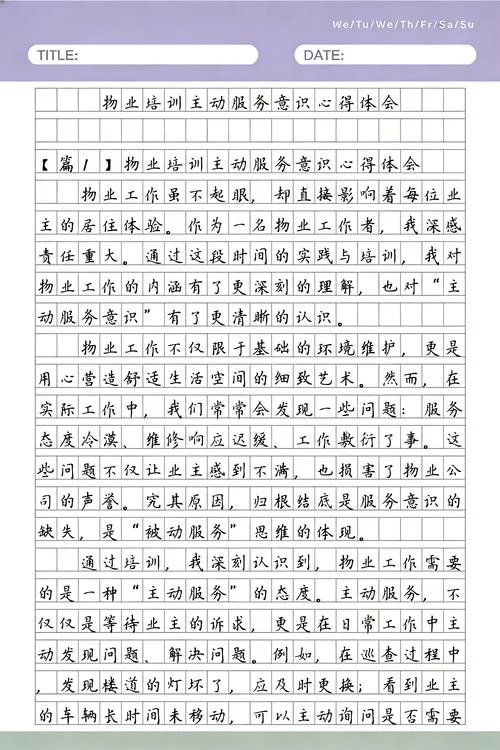 We/Tu/We/Th/Fr/Sa/Su
TITLE:
DATE:
物业培训主动服务意识心得体会
【篇1】物业培训主动服务意识心得体会
物业工作虽不起眼，却直接影响着每位业
主的居住体验。作为一名物业工作者，我深感
责任重大。通过这段时间的实践与培训，我对
物业工作的内涵有了更深刻的理解，也对“主
动服务意识”有了更清晰的认识。
物业工作不仅限于基础的环境维护，更是
用心营造舒适生活空间的细致艺术。然而，在
实际工作中，我们常常会发现一些问题：服务
态度冷漠、维修响应迟缓、工作敷衍了事。这
些问题不仅让业主感到不满，也损害了物业公
司的声誉。究其原因，归根结底是服务意识的
缺失，是“被动服务”思维的体现。
通过培训，我深刻认识到，物业工作需要
的是一种“主动服务”的态度。主动服务，不
仅仅是等待业主的诉求，更是在日常工作中主
动发现问题、解决问题。例如，在巡查过程中
，发现楼道的灯坏了，应及时更换；看到业主
的车辆长时间未移动，可以主动询问是否需要